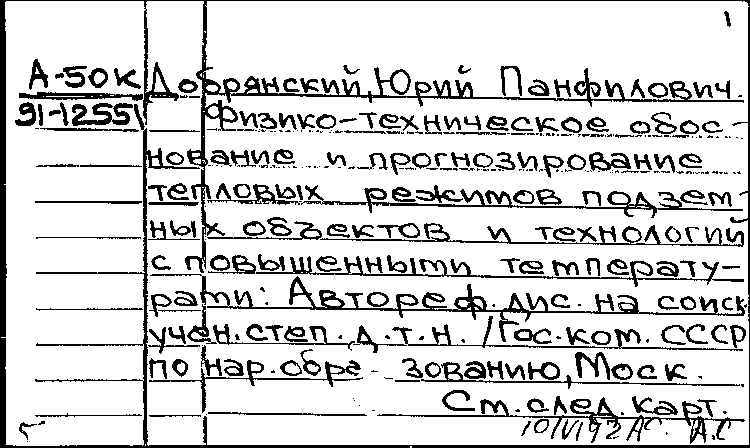 1
А-50к Добрянский, Юрий Панфилович.
91-12551 Физико-техническое обос-
нование и прогнозирование
тепловых режимов подзем-
ных объектов и технологий
с повышенными температу-
рами: Автореф. дис. на соиск
учен. степ. д.т.н. /Гос. ком. СССР
по нар. обра зованию, Моск.
См. след. карт.
А.С